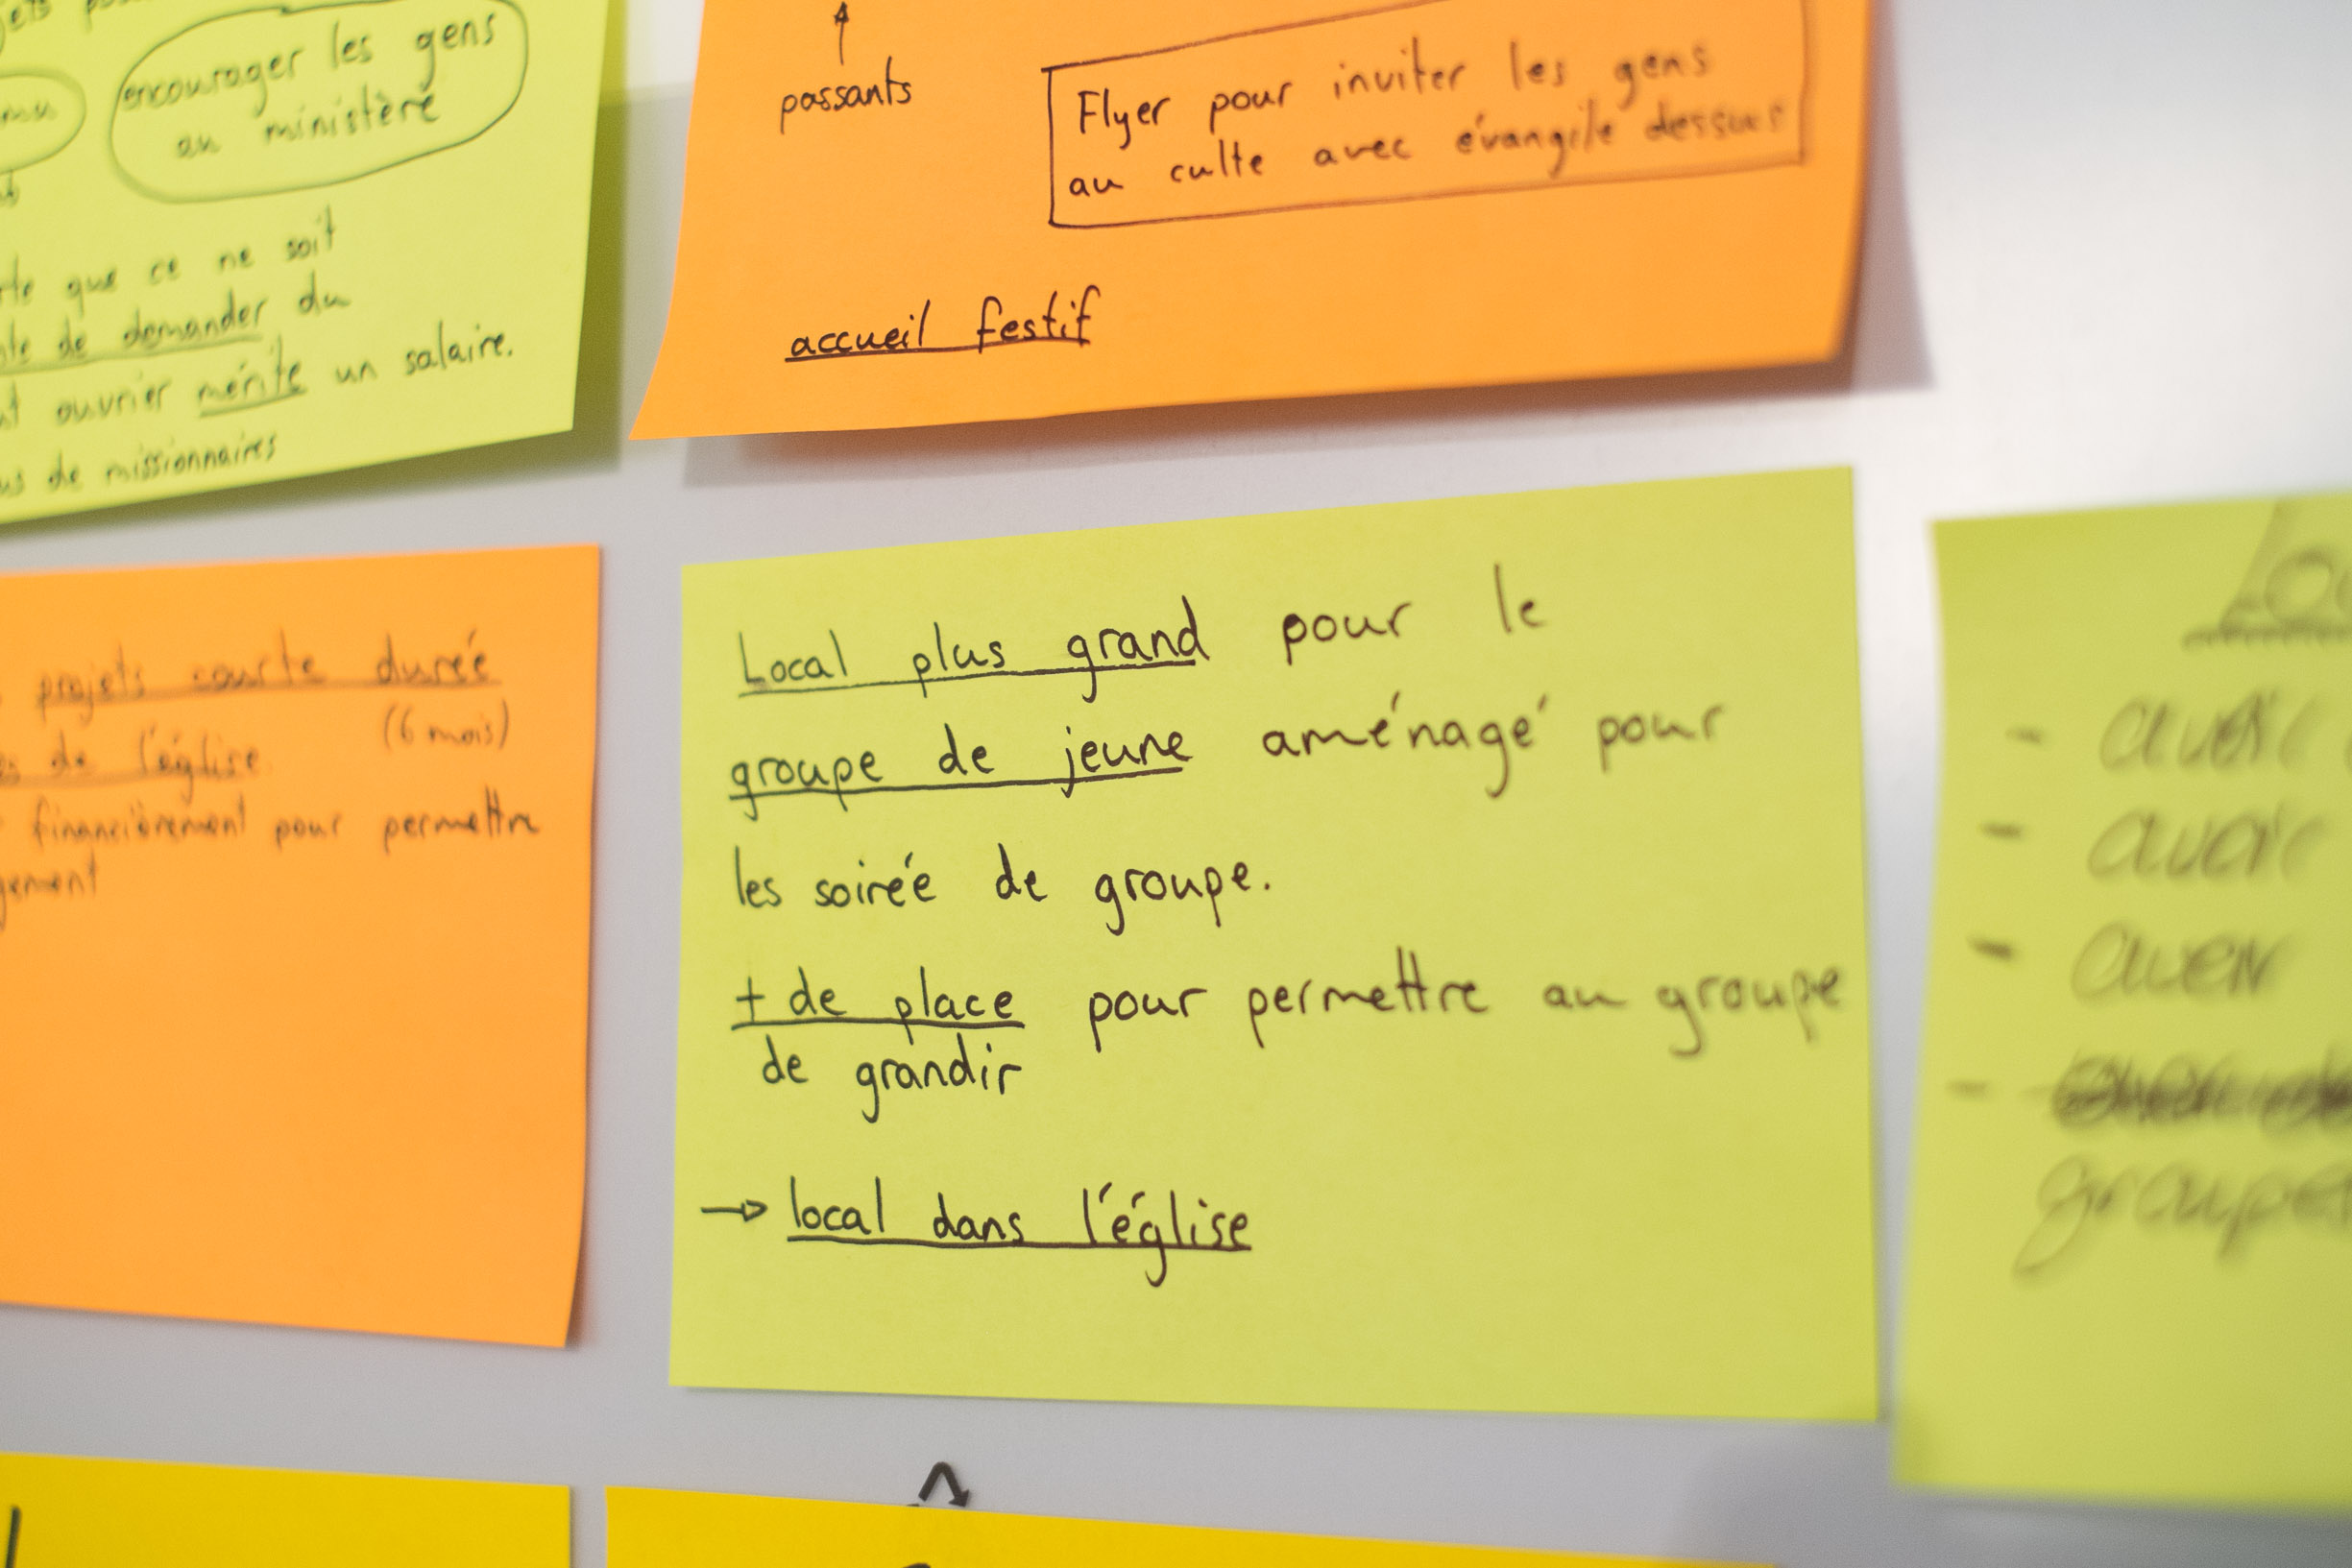 encourager les gens
au ministère
que ce ne soit
de demander du
ouvrier mérite un salaire.
de missionnaires
passants
Flyer pour inviter les gens
au culte avec évangile dessus
accueil festif
projets courte durée
de l'église (6 mois)
financièrement pour permettre
Local plus grand pour le
groupe de jeune aménagé pour
les soirée de groupe.
+ de place pour permettre au groupe
de grandir
→ local dans l'église
- avoir
- avoir
-
-
groupe